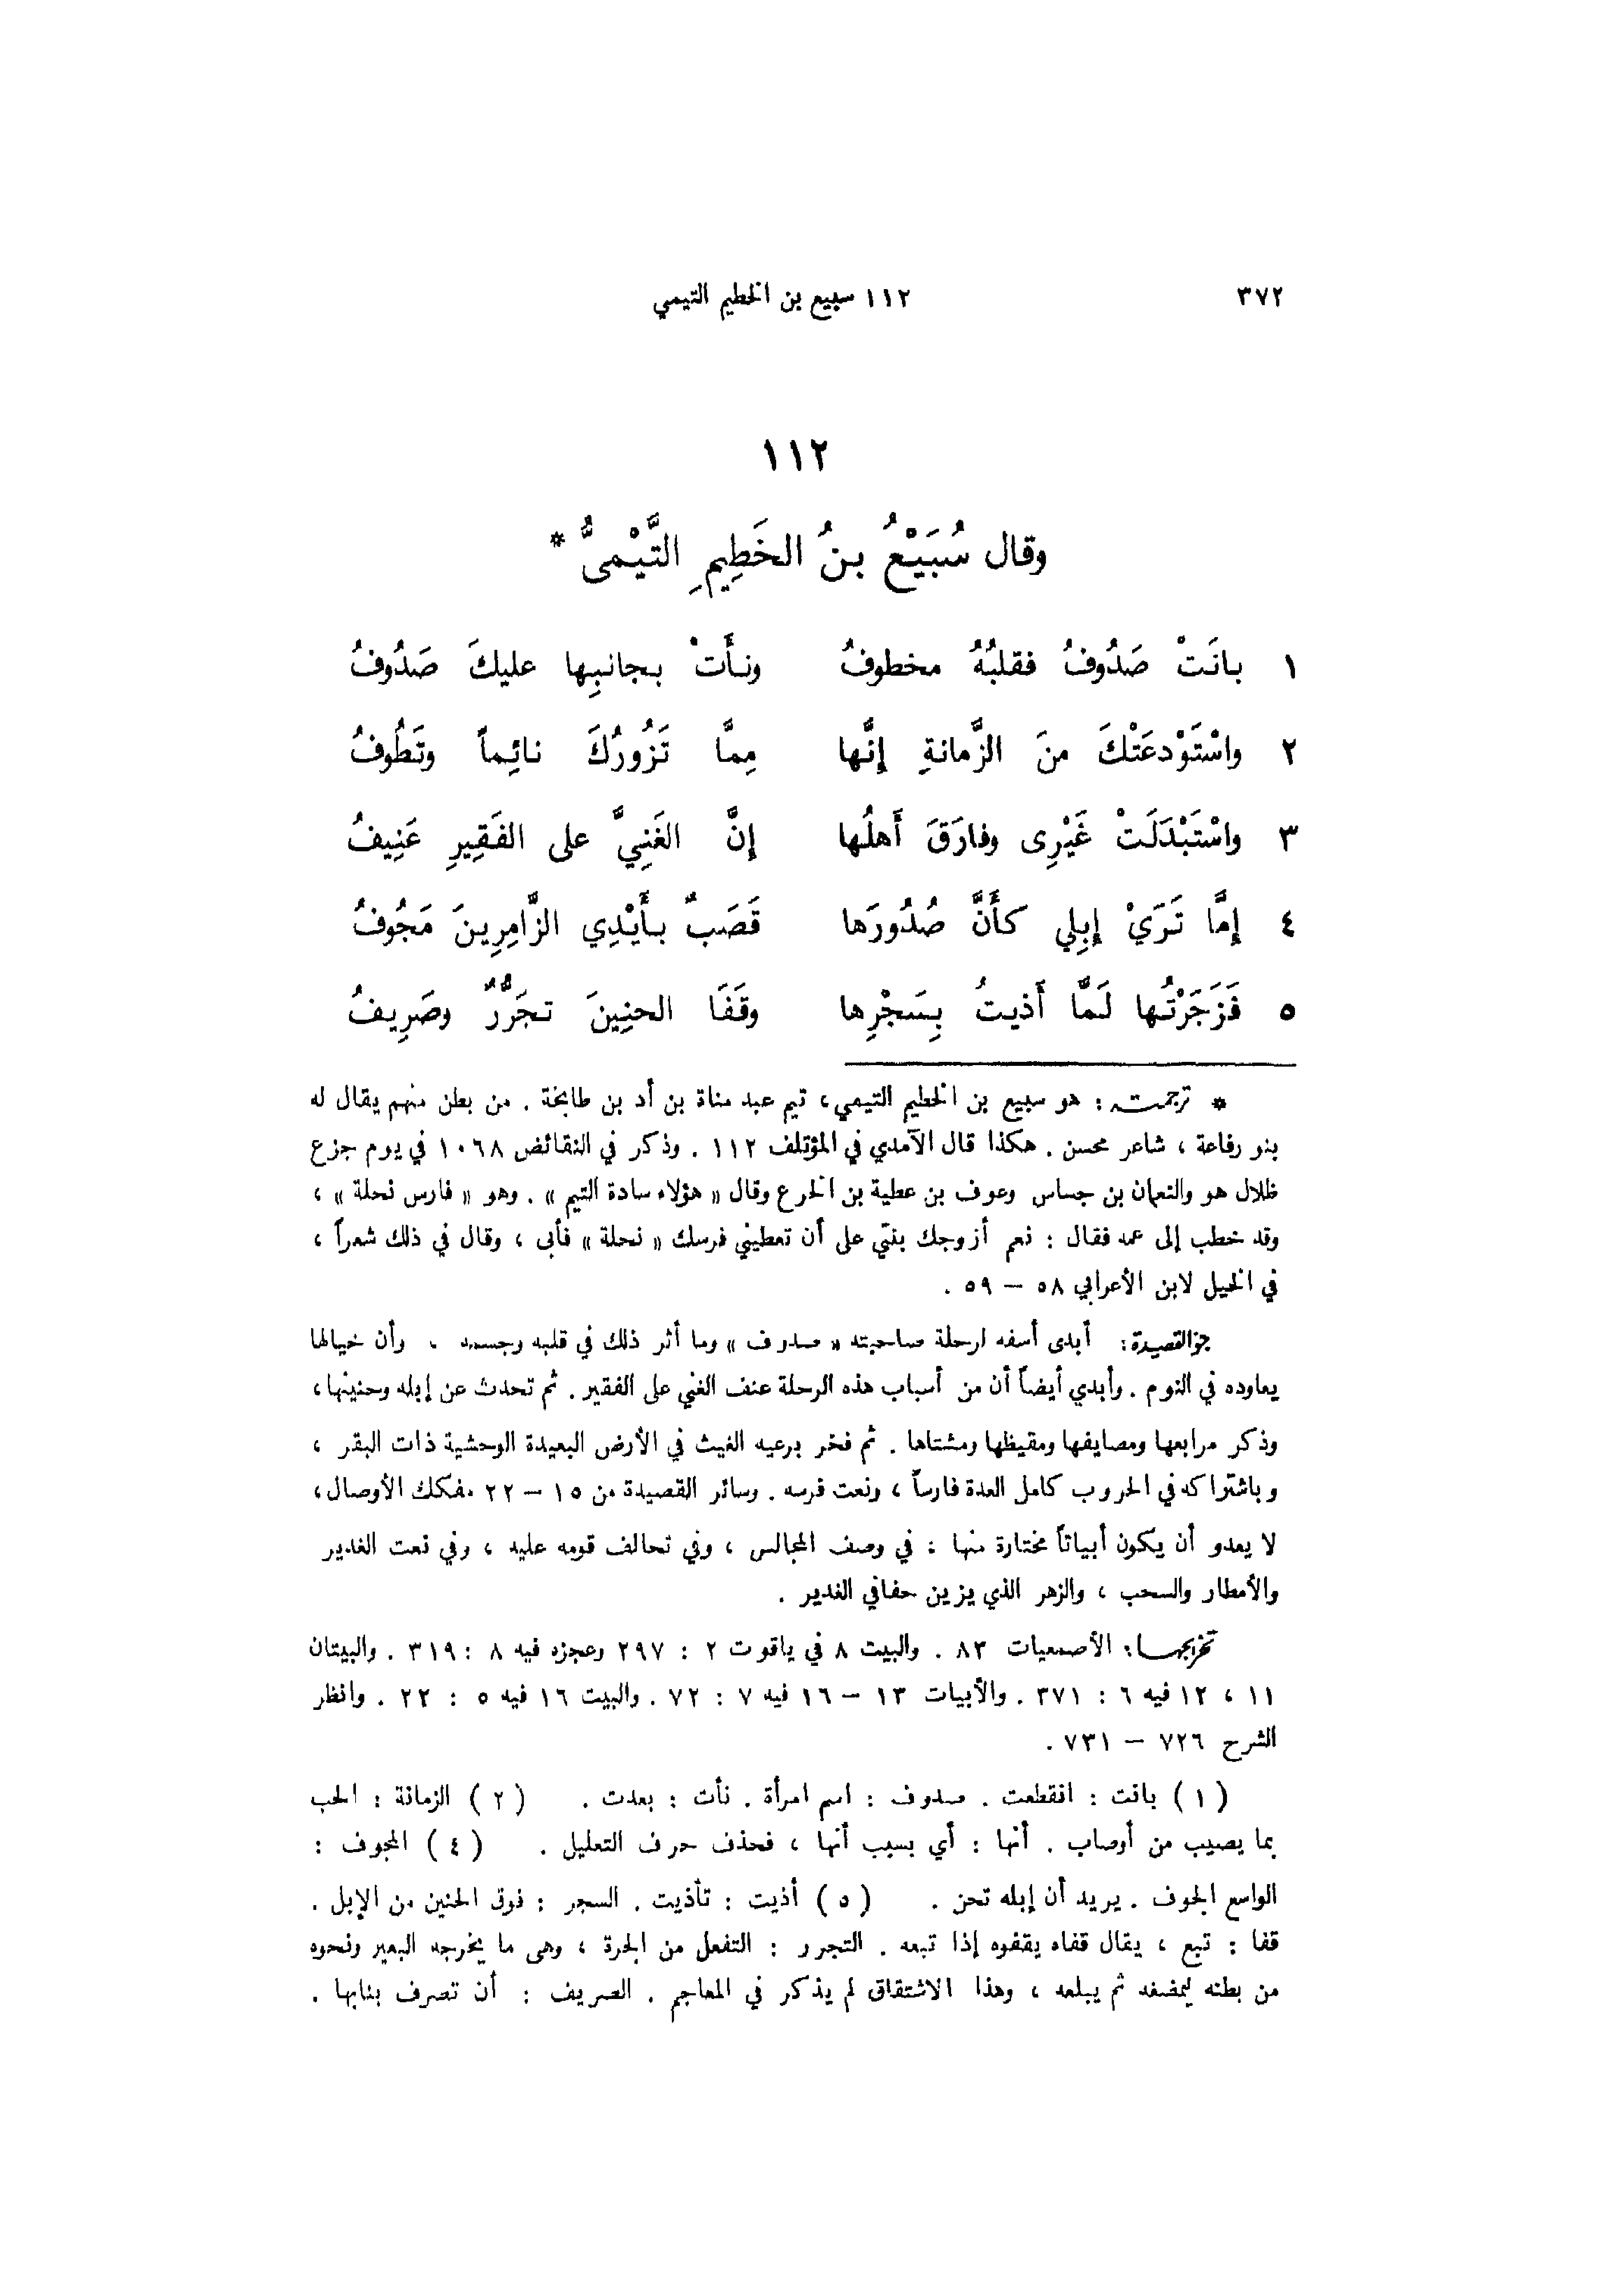 ٣٧٢ ١١٢ سبيع بن الخطيم التيمي
١١٢
وقال سُبَيْعُ بنُ الخَطِيمِ التَّيْمىُّ *
١ بانَتْ صَدُوفُ فقلبُهُ مخطوفُ ونأَتْ بجانبِها عليكَ صَدُوفُ
٢ واسْتَوْدعَتْكَ منَ الزَّمانةِ إنَّها مِمَّا تَزُورُكَ نائِماً وتَطُوفُ
٣ واسْتَبْدَلَتْ غَيْرِى وفارَقَ أَهلُها إنَّ الغَنِيَّ على الفَقِيرِ عَنِيفُ
٤ إمَّا تَرَيْ إبِلي كأَنَّ صُدُورَها قَصَبٌ بأَيْدِي الزَّامِرِينَ مَجُوفُ
٥ فَزَجَرْتُها لَمَّا أَذيتُ بِسَجْرِها وقَفَا الحنِينَ تجَرُّرٌ وصَرِيفُ
* ترجمته: هو سبيع بن الخطيم التيمي، تيم عبد مناة بن أد بن طابخة . من بطن منهم يقال له
بنو رفاعة ، شاعر محسن . هكذا قال الآمدي في المؤتلف ١١٢ . وذكر في النقائض ١٠٦٨ في يوم جزع
ظلال هو والنعمان بن جساس وعوف بن عطية بن الخرع وقال « هؤلاء سادة التيم » . وهو « فارس نحلة » ،
وقد خطب إلى عمه فقال : نعم أزوجك بنتي على أن تعطيني فرسك « نحلة » فأبى ، وقال في ذلك شعراً ،
في الخيل لابن الأعرابي ٥٨ – ٥٩ .
جو القصيدة: أبدى أسفه لرحلة صاحبته « صدوف » وما أثر ذلك في قلبه وجسمه . وأن خيالها
يعاوده في النوم . وأبدي أيضاً أن من أسباب هذه الرحلة عنف الغني على الفقير . ثم تحدث عن إبله وحنينها،
وذكر مرابعها ومصايفها ومقيظها ومشتاها . ثم فخر برعيه الغيث في الأرض البعيدة الوحشية ذات البقر ،
وباشتراكه في الحروب كامل العدة فارساً ، ونعت فرسه . وسائر القصيدة من ١٥ – ٢٢ مفكك الأوصال،
لا يعدو أن يكون أبياتاً مختارة منها : في وصف المجالس ، وفي تحالف قومه عليه ، وفي نعت الغدير
والأمطار والسحب ، والزهر الذي يزين حفافي الغدير .
تخريجها: الأصمعيات ٨٣ . والبيت ٨ في ياقوت ٢ : ٢٩٧ وعجزه فيه ٨ : ٣١٩ . والبيتان
١١ ، ١٢ فيه ٦ : ٣٧١ . والأبيات ١٣ – ١٦ فيه ٧ : ٧٢ . والبيت ١٦ فيه ٥ : ٢٢ . وانظر
الشرح ٧٢٦ – ٧٣١ .
( ١ ) بانت : انقطعت . صدوف : اسم امرأة . نأت : بعدت . ( ٢ ) الزمانة : الحب
بما يصيب من أوصاب . أنها : أي بسبب أنها ، فحذف حرف التعليل . ( ٤ ) المجوف :
الواسع الجوف . يريد أن إبله تحن . ( ٥ ) أذيت : تأذيت . السجر : فوق الحنين من الإبل .
قفا : تبع ، يقال قفاه يقفوه إذا تبعه . التجرر : التفعل من الجرة ، وهى ما يخرجه البعير ونحوه
من بطنه ليمضغه ثم يبلعه ، وهذا الاشتقاق لم يذكر في المعاجم . الصريف : أن تصرف بنابها .